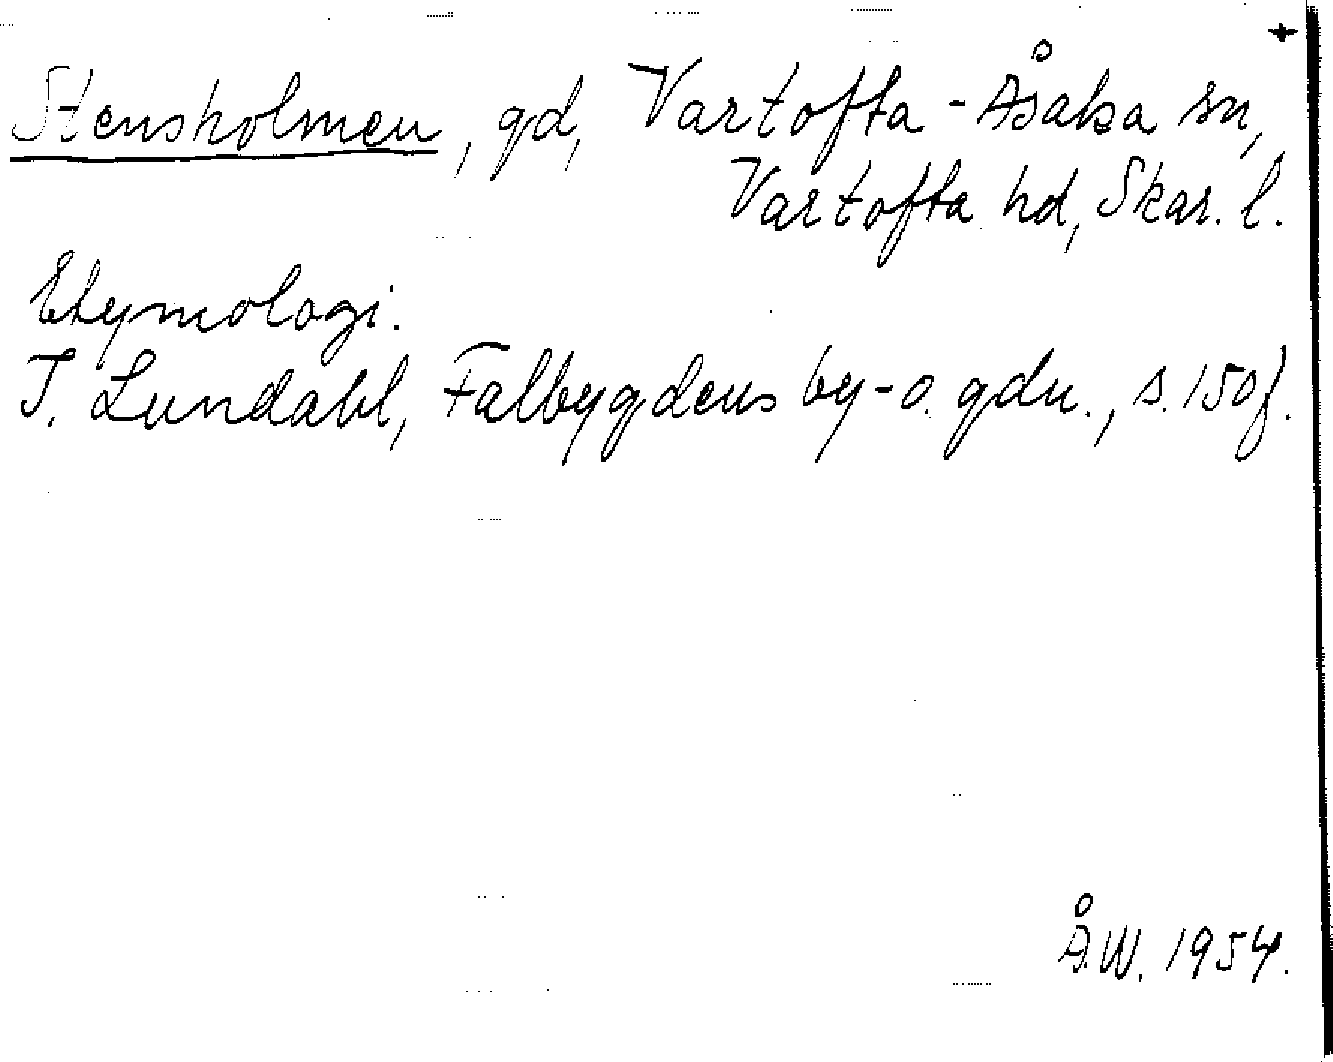 +
Stensholmen, gd, Vartofta-Åsaka sn,
Vartofta hd, Skar. l.
Etymologi.
I. Lundahl, Falbygdens by- o. gdn., s. 150 f.
Å.W. 1954.